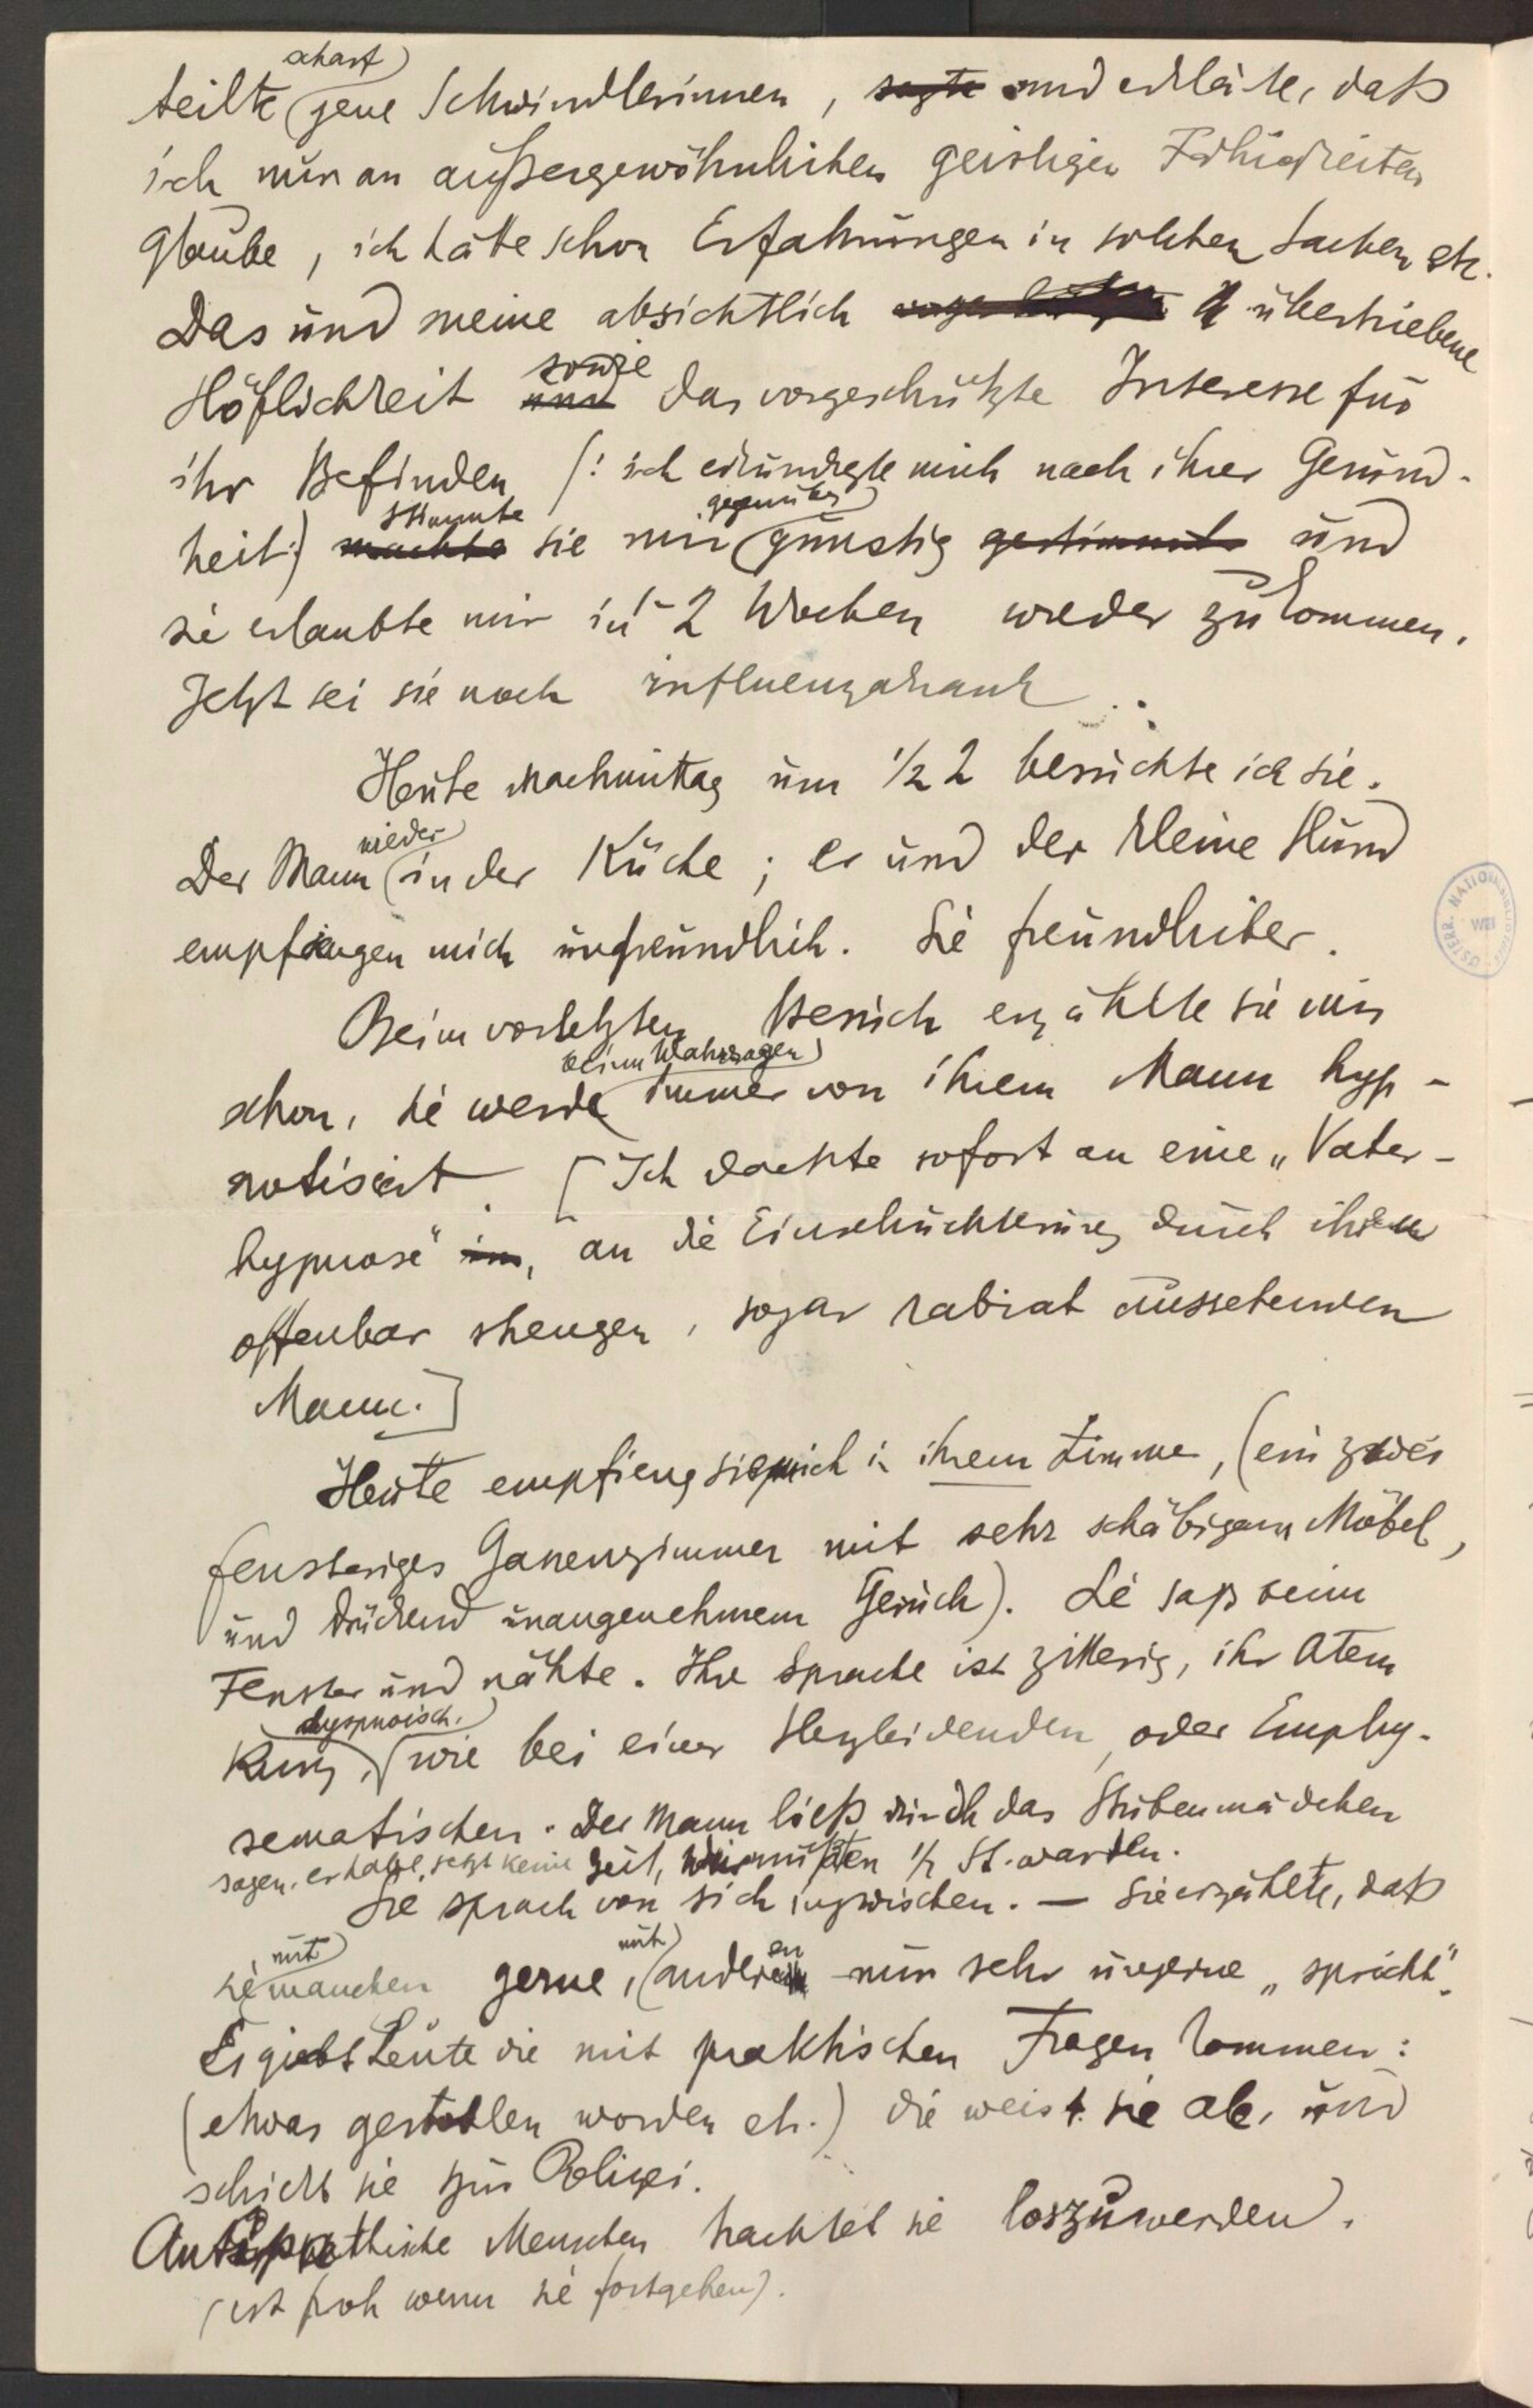 teilte scharf jene Schwindlerinnen, sagte und erklärte, daß
ich nur an außergewöhnlichen geistigen Fähigkeiten
glaube, ich hätte schon Erfahrungen in solchen Sachen etc.
Das und meine absichtlich übertriebene
Höflichkeit und sowie das vorgeschützte Interesse für
ihr Befinden (: ich erkundigte mich nach ihrer Gesund-
heit:) machte stimmte sie mir gegenüber günstig gestimmt und
sie erlaubte mir in 2 Wochen wieder zu kommen.
Jetzt sei sie noch influenzakrank.
Heute Nachmittag um ½ 2 besuchte ich sie.
Der Mann wieder in der Küche; er und der kleine Hund
empfiengen mich unfreundlich. Sie freundlicher.
Beim vorletzten Besuch erzählte sie mir
schon, sie werde beim Wahrsagen immer von ihrem Mann hyp-
notisiert. [Ich dachte sofort an eine „Vater-
hypnose" im, an die Einschüchterung durch ihren
offenbar strengen, sogar rabiat aussehenden
Mann.]
Heute empfieng sie mich in ihrem Zimmer, (ein zwei
fenstriges Gassenzimmer mit sehr schäbigem Möbel,
und drückend unangenehmem Geruch). Sie saß beim
Fenster und nähte. Ihre Sprache ist zitterig, ihr Atem
kurz, dyspnoisch. wie bei einer Herzleidenden, oder Emphy-
sematischen. Der Mann ließ durch das Stubenmädchen
sagen, er habe jetzt keine Zeit, wir müßten ½ St. warten.
Sie sprach von sich inzwischen. — Sie erzählte, daß
sie mit manchen gerne, mit anderen nur sehr ungerne „spricht".
Es giebt Leute die mit praktischen Fragen kommen:
(etwas gestohlen worden etc.) die weist sie ab, und
schickt sie zur Polizei.
Antipathische Menschen trachtet sie loszuwerden.
(ist froh wenn sie fortgehen).
ÖSTERR. NATIONALBIBLIOTHEK WIEN